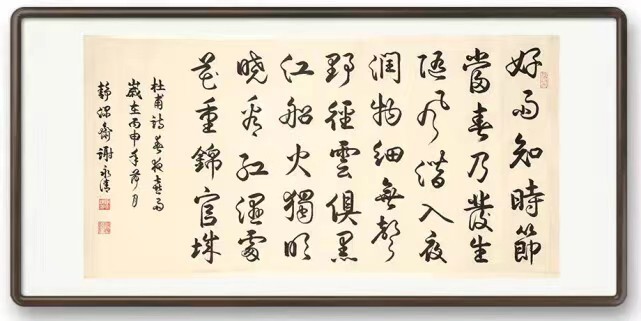 好雨知時節
當春乃發生
隨風潛入夜
潤物細無聲
野徑雲俱黑
江船火獨明
曉看紅濕處
花重錦官城
杜甫詩春夜喜雨
歲在丙申年月
謝永清